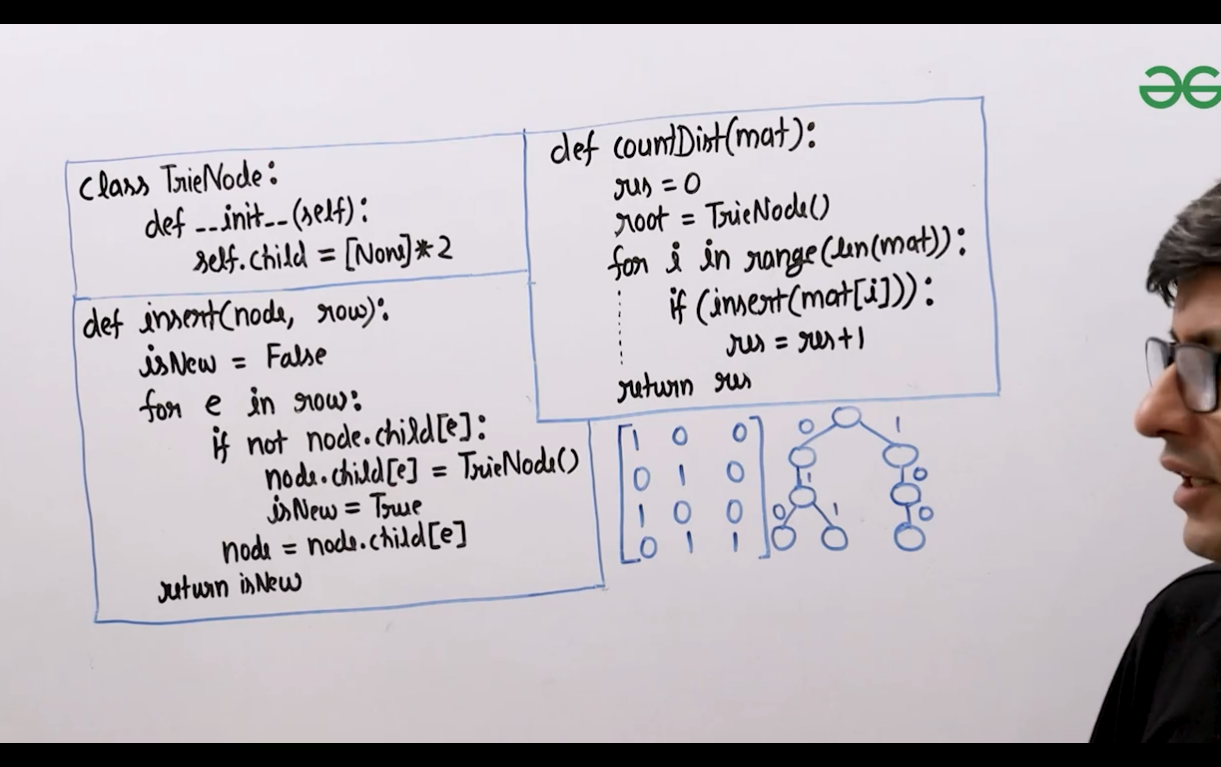 class TrieNode:
def __init__(self):
self.child = [None]*2
def insert(node, row):
isNew = False
for e in row:
if not node.child[e]:
node.child[e] = TrieNode()
isNew = True
node = node.child[e]
return isNew
def countDist(mat):
res = 0
root = TrieNode()
for i in range(len(mat)):
if (insert(mat[i])):
res = res+1
return res
1 0 0
0 1 0
1 0 0
0 1 1
0 1
1 0
0 1 0